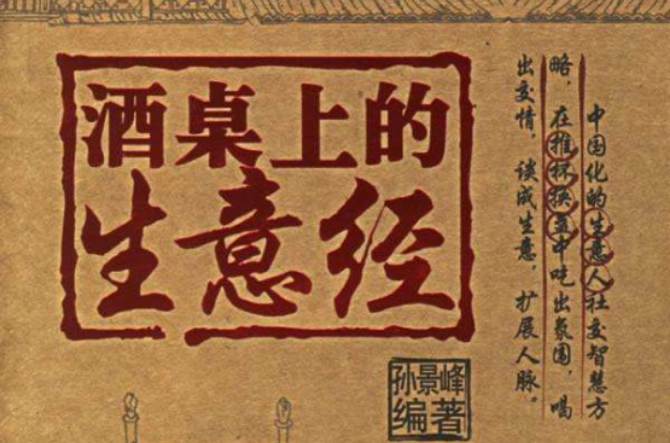 酒桌上的
生意经
中国化的生意人社交智慧方
略，在推杯换盏中吃出氛围，喝
出交情，谈成生意，扩展人脉。
孙景峰
编著